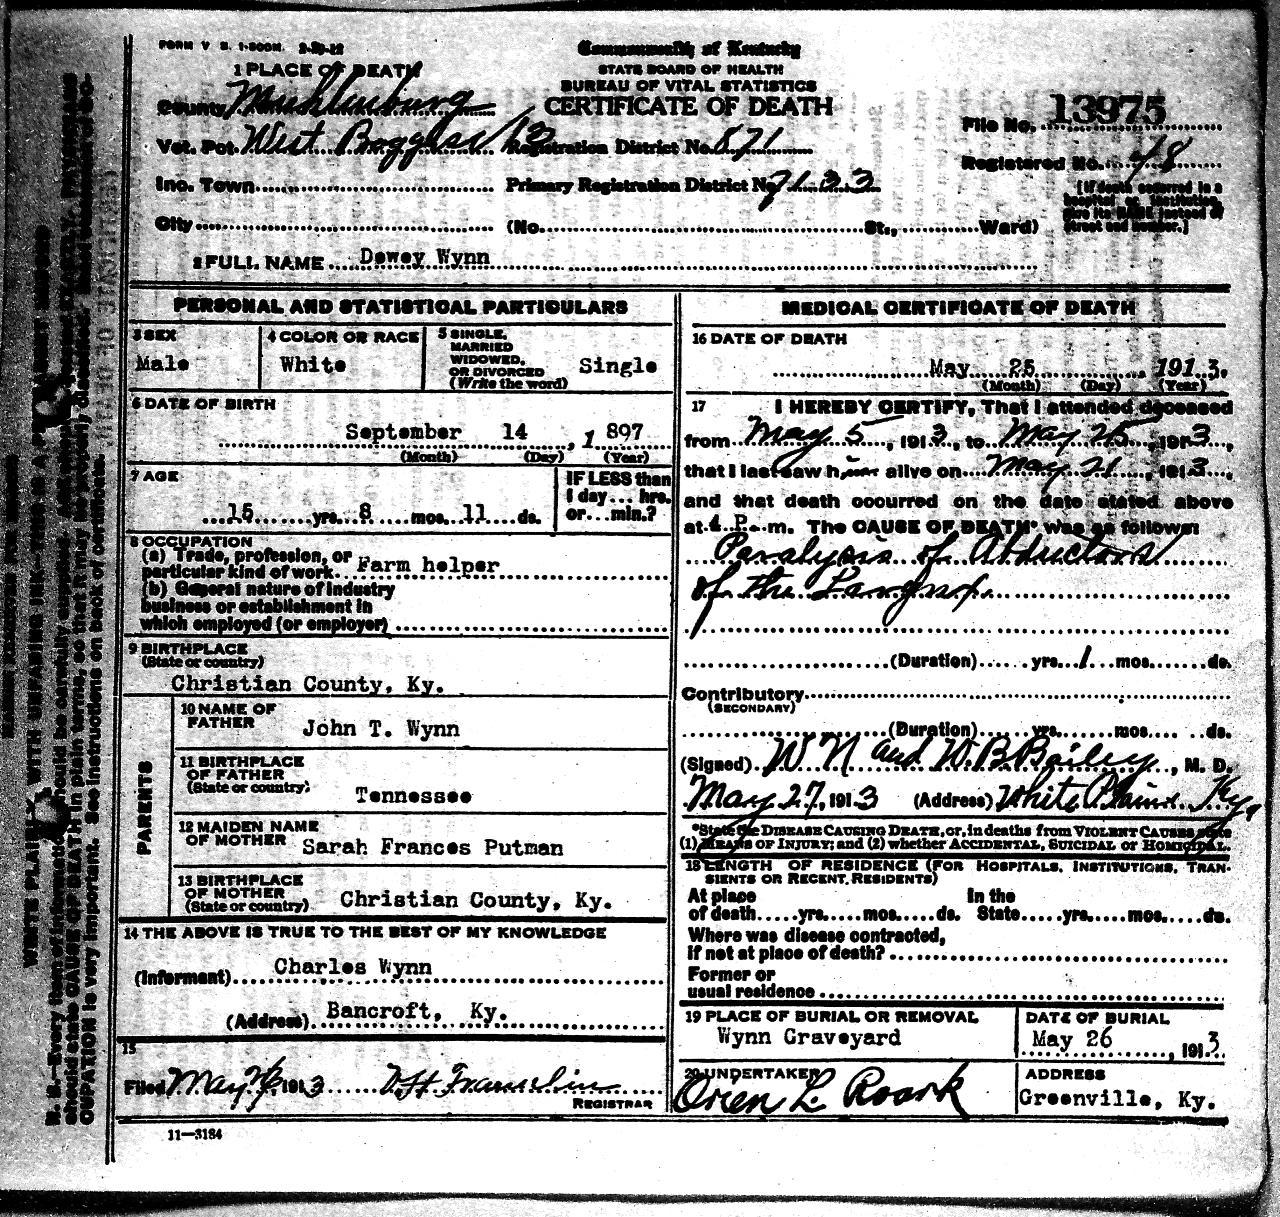 FORM V. S. 1-500M. 2-20-12
Commonwealth of Kentucky
STATE BOARD OF HEALTH
BUREAU OF VITAL STATISTICS
CERTIFICATE OF DEATH
1 PLACE OF DEATH
County Muhlenburg
Vot. Pct. West 13
Inc. Town
City
Registration District No. 871
Primary Registration District No. 7133
(No. St., Ward)
File No. 13975
Registered No. 48
[If death occurred in a
hospital or institution,
give its NAME instead of
street and number.]
2 FULL NAME Dewey Wynn
PERSONAL AND STATISTICAL PARTICULARS
3 SEX
Male
4 COLOR OR RACE
White
5 SINGLE,
MARRIED
WIDOWED,
OR DIVORCED
(Write the word)
Single
6 DATE OF BIRTH
September 14, 1 897
(Month) (Day) (Year)
7 AGE
15 yrs. 8 mos. 11 ds.
IF LESS than
1 day... hrs.
or...min.?
8 OCCUPATION
(a) Trade, profession, or
particular kind of work. Farm helper
(b) General nature of industry
business or establishment in
which employed (or employer)
9 BIRTHPLACE
(State or country)
Christian County, Ky.
PARENTS
10 NAME OF
FATHER
John T. Wynn
11 BIRTHPLACE
OF FATHER
(State or country)
Tennessee
12 MAIDEN NAME
OF MOTHER
Sarah Frances Putman
13 BIRTHPLACE
OF MOTHER
(State or country)
Christian County, Ky.
14 THE ABOVE IS TRUE TO THE BEST OF MY KNOWLEDGE
(Informant) Charles Wynn
(Address) Bancroft, Ky.
15
Filed May 1913
REGISTRAR
11-3184
MEDICAL CERTIFICATE OF DEATH
16 DATE OF DEATH
May 25, 1913.
(Month) (Day) (Year)
17 I HEREBY CERTIFY, That I attended deceased
from May 5, 1913, to May 25, 1913,
that I last saw him alive on May 21, 1913,
and that death occurred on the date stated above
at 4 P. m. The CAUSE OF DEATH* was as follows:
Paralysis of Abductors
of the Larynx.
(Duration) yrs. 1 mos. ds.
Contributory
(SECONDARY)
(Duration) yrs. mos. ds.
(Signed) W N and W. B. Bailey, M. D.
May 27, 1913 (Address) White Plains Ky,
*State the DISEASE CAUSING DEATH, or, in deaths from VIOLENT CAUSES state
(1) MEANS OF INJURY; and (2) whether ACCIDENTAL, SUICIDAL OR HOMICIDAL.
18 LENGTH OF RESIDENCE (FOR HOSPITALS, INSTITUTIONS, TRAN-
SIENTS OR RECENT RESIDENTS)
At place In the
of death.....yrs.....mos.....ds. State.....yrs.....mos.....ds.
Where was disease contracted,
if not at place of death?
Former or
usual residence
19 PLACE OF BURIAL OR REMOVAL
Wynn Graveyard
DATE OF BURIAL
May 26, 1913.
20 UNDERTAKER
Orien L. Roark
ADDRESS
Greenville, Ky.
WRITE PLAINLY WITH UNFADING INK—THIS IS A PERMANENT RECORD
N. B.—Every item of information should be carefully supplied. AGE should be stated EXACTLY. PHYSICIANS
should state CAUSE OF DEATH in plain terms, so that it may be properly classified.
OCCUPATION is very important. See instructions on back of certificate.